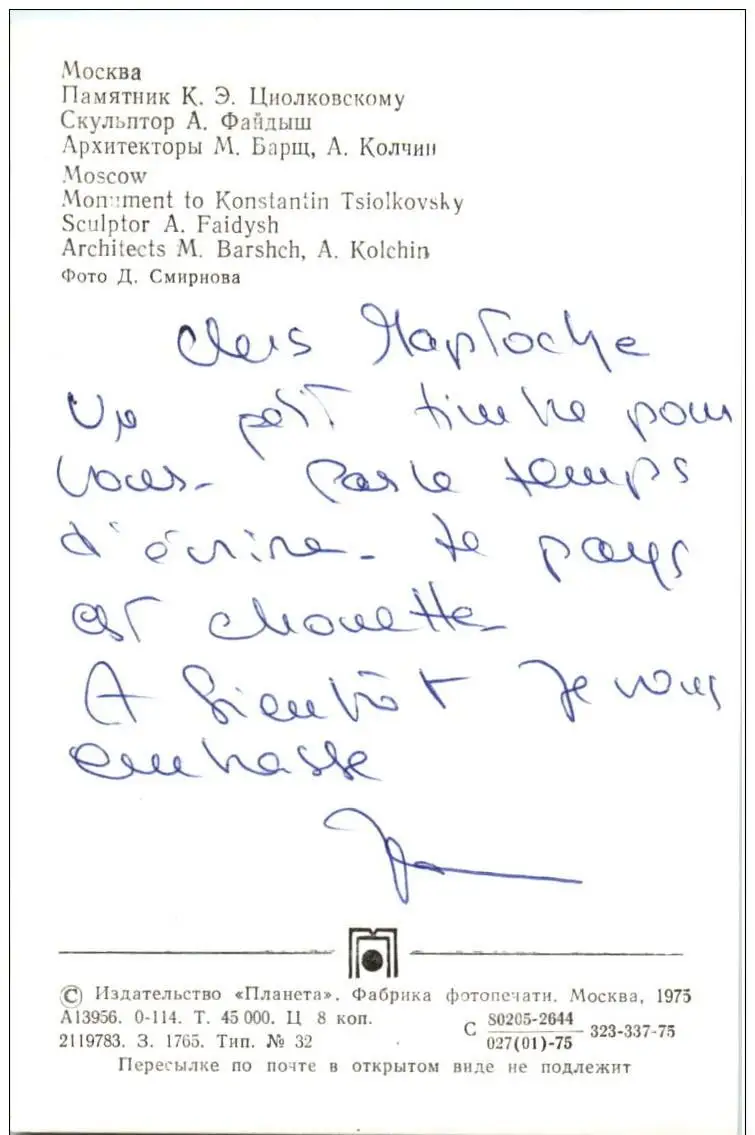 Москва
Памятник К. Э. Циолковскому
Скульптор А. Файдыш
Архитекторы М. Барщ, А. Колчин
Moscow
Monument to Konstantin Tsiolkovsky
Sculptor A. Faidysh
Architects M. Barshch, A. Kolchin
Фото Д. Смирнова
Chers
Un petit timbre pour
vous. Pas le temps
d'écrire. Le pays
est chouette
A bientôt Je vous
embrasse
© Издательство «Планета». Фабрика фотопечати. Москва, 1975
А13956. 0-114. Т. 45 000. Ц 8 коп.
2119783. З. 1765. Тип. № 32
С 80205-2644 / 027(01)-75 323-337-75
Пересылке по почте в открытом виде не подлежит